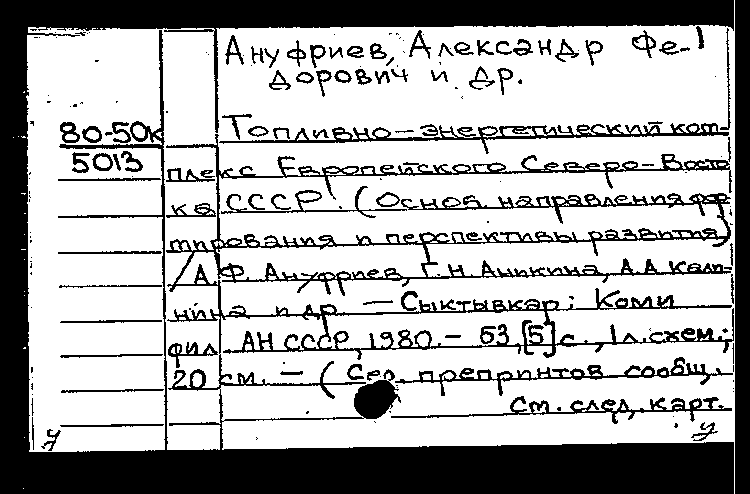 Ануфриев, Александр Фе-
дорович и др.
80-50к
5013
Топливно-энергетический ком-
плекс Европейского Северо-Восто
ка СССР. (Основ. направления фор
мирования и перспективы развития)
/А. Ф. Ануфриев, Г. Н. Аникина, А. А. Кали-
нина и др. — Сыктывкар: Коми
фил. АН СССР, 1980. - 53, [5] с., 1 л. схем.;
20 см. — (Сер. препринтов сообщ.
См. след. карт.
у
у